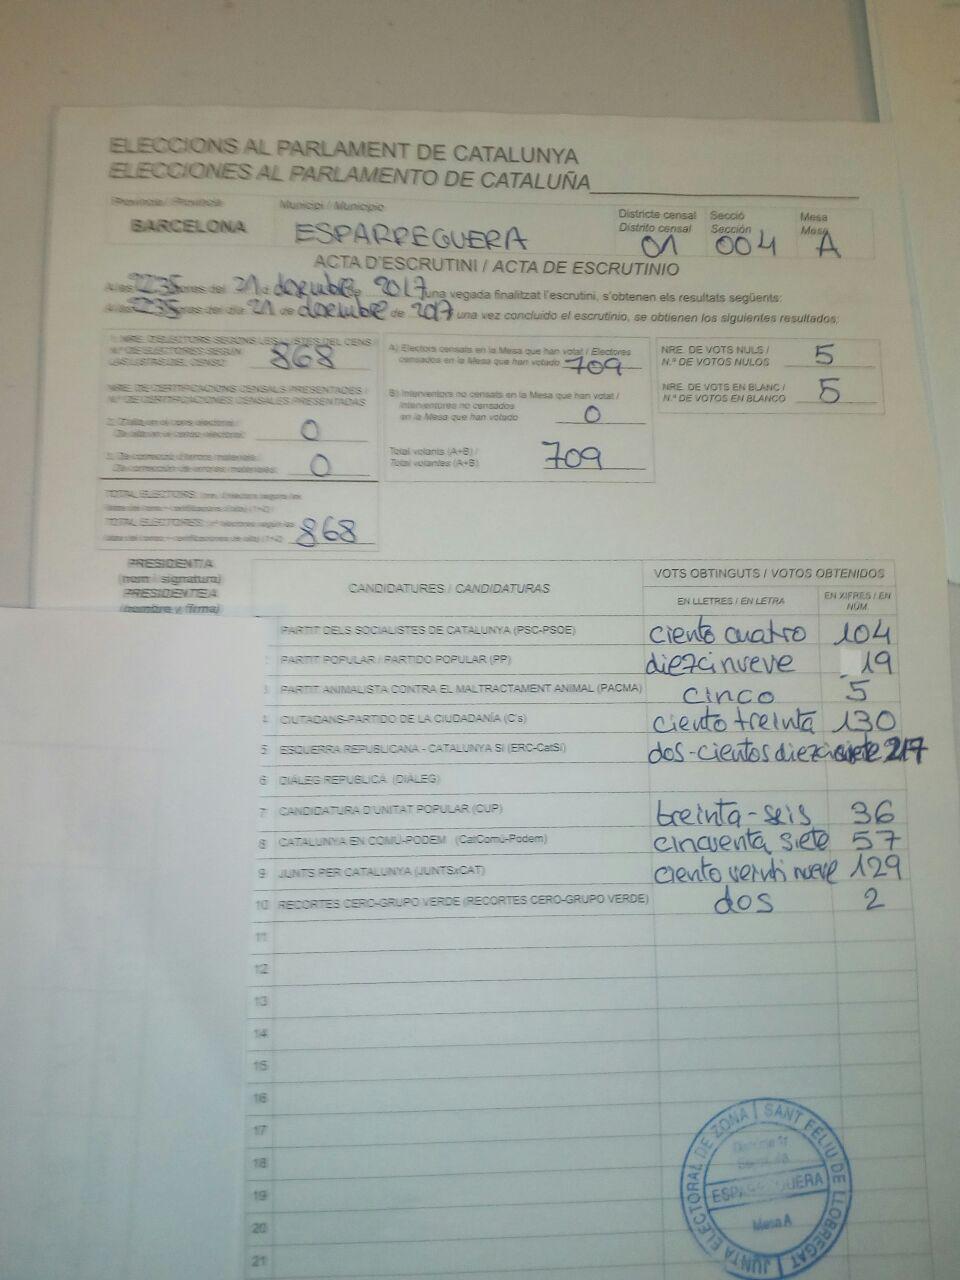 ELECCIONS AL PARLAMENT DE CATALUNYA
ELECCIONES AL PARLAMENTO DE CATALUÑA
Província / Provincia
Municipi / Municipio
Districte censal Secció Mesa
Distrito censal Sección Mesa
BARCELONA ESPARREGUERA 01 004 A
ACTA D'ESCRUTINI / ACTA DE ESCRUTINIO
A les 2235 hores del 21 de desembre de 2017 una vegada finalitzat l'escrutini, s'obtenen els resultats següents:
A las 2235 horas del día 21 de desembre de 2017 una vez concluido el escrutinio, se obtienen los siguientes resultados:
1. NRE. D'ELECTORS SEGONS LES LLISTES DEL CENS /
N.º DE ELECTORES SEGÚN
LAS LISTAS DEL CENSO 868
NRE. DE CERTIFICACIONS CENSALS PRESENTADES /
N.º DE CERTIFICACIONES CENSALES PRESENTADAS
0
0
TOTAL ELECTORS:
TOTAL ELECTORES: 868
A) Electors censals en la Mesa que han votat / Electores
censados en la Mesa que han votado 709
B) Interventors no censats en la Mesa que han votat /
Interventores no censados
en la Mesa que han votado 0
Total votants (A+B) /
Total votantes (A+B) 709
NRE. DE VOTS NULS /
N.º DE VOTOS NULOS 5
NRE. DE VOTS EN BLANC /
N.º DE VOTOS EN BLANCO 5
PRESIDENT/A
(nom i signatura)
PRESIDENTE/A
(nombre y firma)
CANDIDATURES / CANDIDATURAS
VOTS OBTINGUTS / VOTOS OBTENIDOS
EN LLETRES / EN LETRA
EN XIFRES / EN
NÚM.
PARTIT DELS SOCIALISTES DE CATALUNYA (PSC-PSOE) ciento cuatro 104
2 PARTIT POPULAR / PARTIDO POPULAR (PP) diezcinueve 19
3 PARTIT ANIMALISTA CONTRA EL MALTRACTAMENT ANIMAL (PACMA) cinco 5
4 CIUTADANS-PARTIDO DE LA CIUDADANÍA (C's) ciento treinta 130
5 ESQUERRA REPUBLICANA - CATALUNYA SÍ (ERC-CatSí) dos-cientos diezcisiete 217
6 DIÀLEG REPUBLICÀ (DIÀLEG)
7 CANDIDATURA D'UNITAT POPULAR (CUP) treinta-seis 36
8 CATALUNYA EN COMÚ-PODEM (CatComú-Podem) cincuenta siete 57
9 JUNTS PER CATALUNYA (JUNTSxCAT) ciento veinti nueve 129
10 RECORTES CERO-GRUPO VERDE (RECORTES CERO-GRUPO VERDE) dos 2
11
12
13
14
15
16
17
18
19
20
21
JUNTA ELECTORAL DE ZONA | SANT FELIU DE LLOBREGAT
ESPARREGUERA
Mesa A